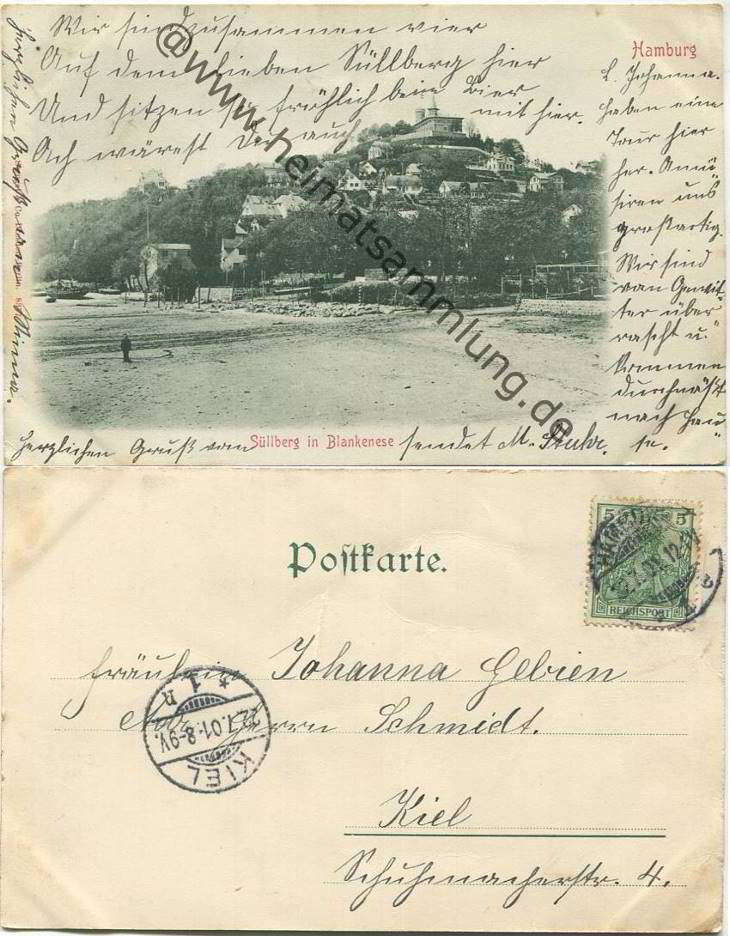 Wir sind zusammen vier
Auf dem lieben Süllberg hier
Und sitzen so fröhlich beim Bier
Ach wärest Du auch mit hier.
Hamburg
L. Johanna.
Haben eine
Tour hier
her. Amü
siren uns
großartig.
Wir sind
von Gewit
ter über
rascht u.
kommen
durchnäßt
nach Hau
se.
Herzlichen Gruß von Minna.
Herzlichen Gruß von
Süllberg in Blankenese
sendet M. Stuhr.
@www.heimatsammlung.de
Postkarte.
5 5
REICHSPOST
Fräulein Johanna Gebien
Adr. Herrn Schmidt.
Kiel
Schuhmacherstr. 4.
KIEL
22.7.01.8-9V.
* 1 n